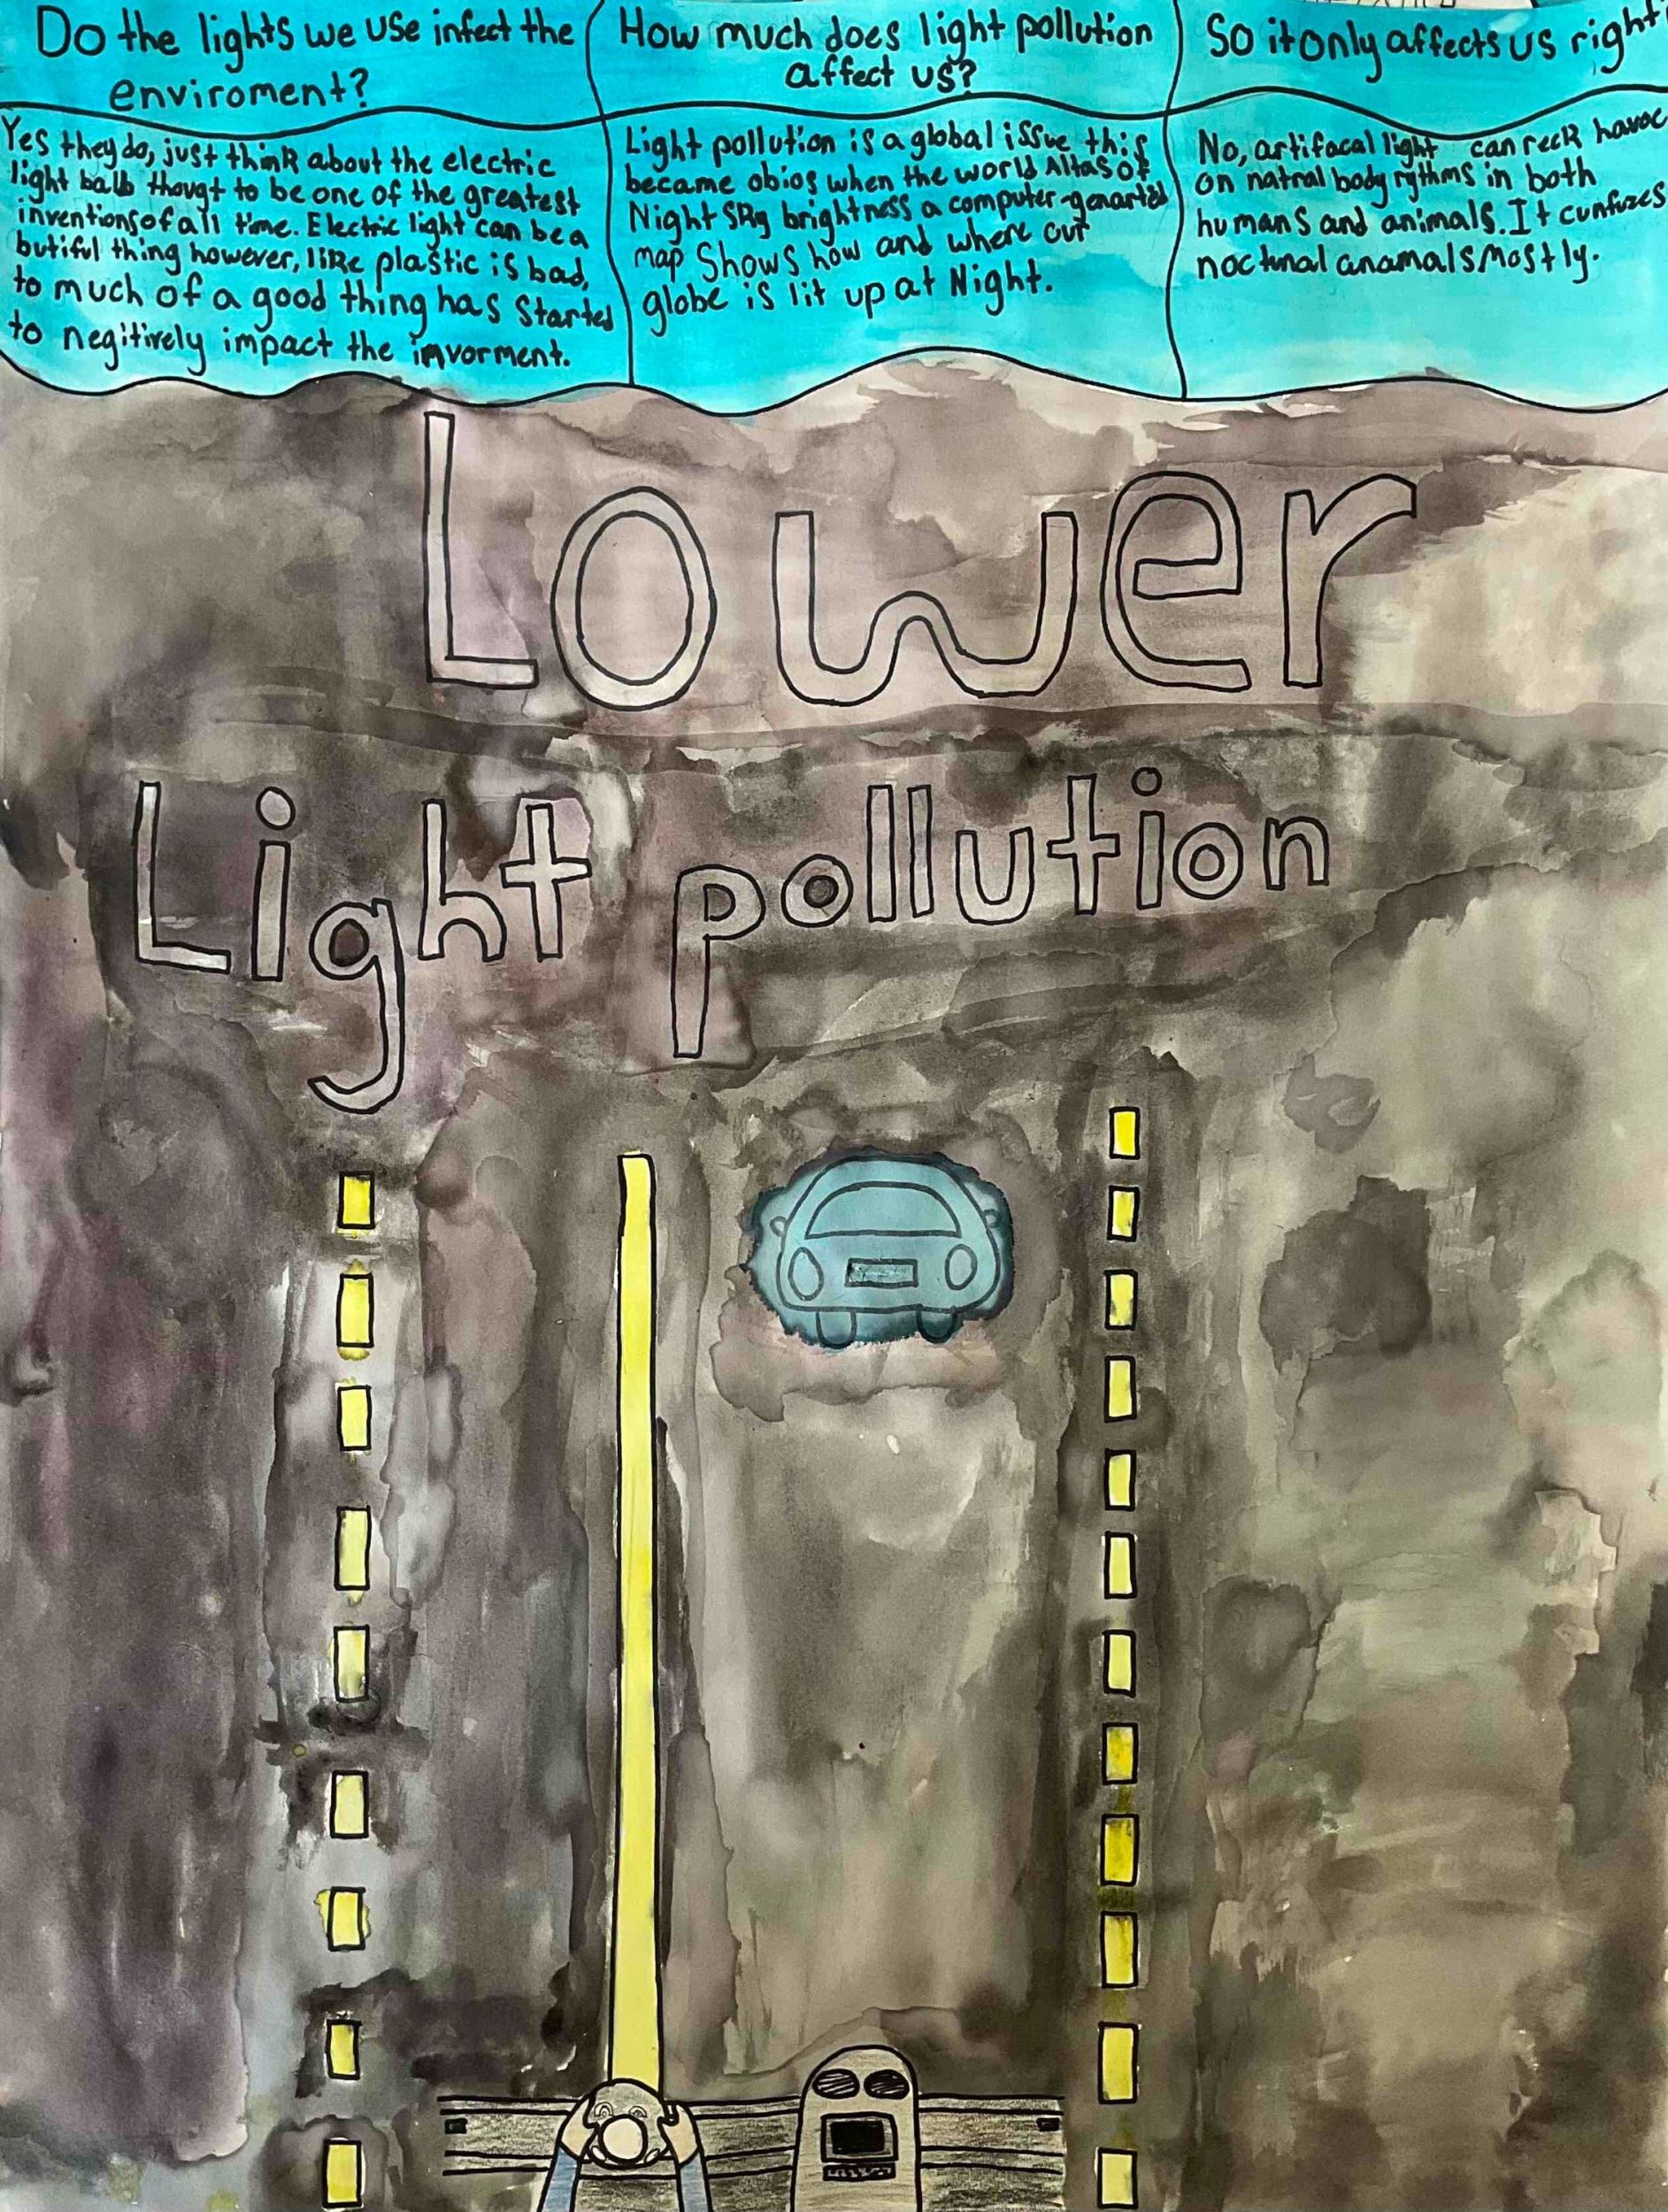 Do the lights we use infect the
enviroment?
Yes they do, just think about the electric
light balb thougt to be one of the greatest
inventions of all time. Electric light can be a
butiful thing however, like plastic is bad,
to much of a good thing has started
to negitively impact the invorment.
How much does light pollution
affect us?
Light pollution is a global issue this
became obios when the world Altas of
Night Sky brightness a computer-genarted
map Shows how and where our
globe is lit up at Night.
So it only affects us right?
No, artifacal light can reck havoc
on natral body rythms in both
humans and animals. It cunfuzes
noctunal anamals mostly.
Lower
Light pollution